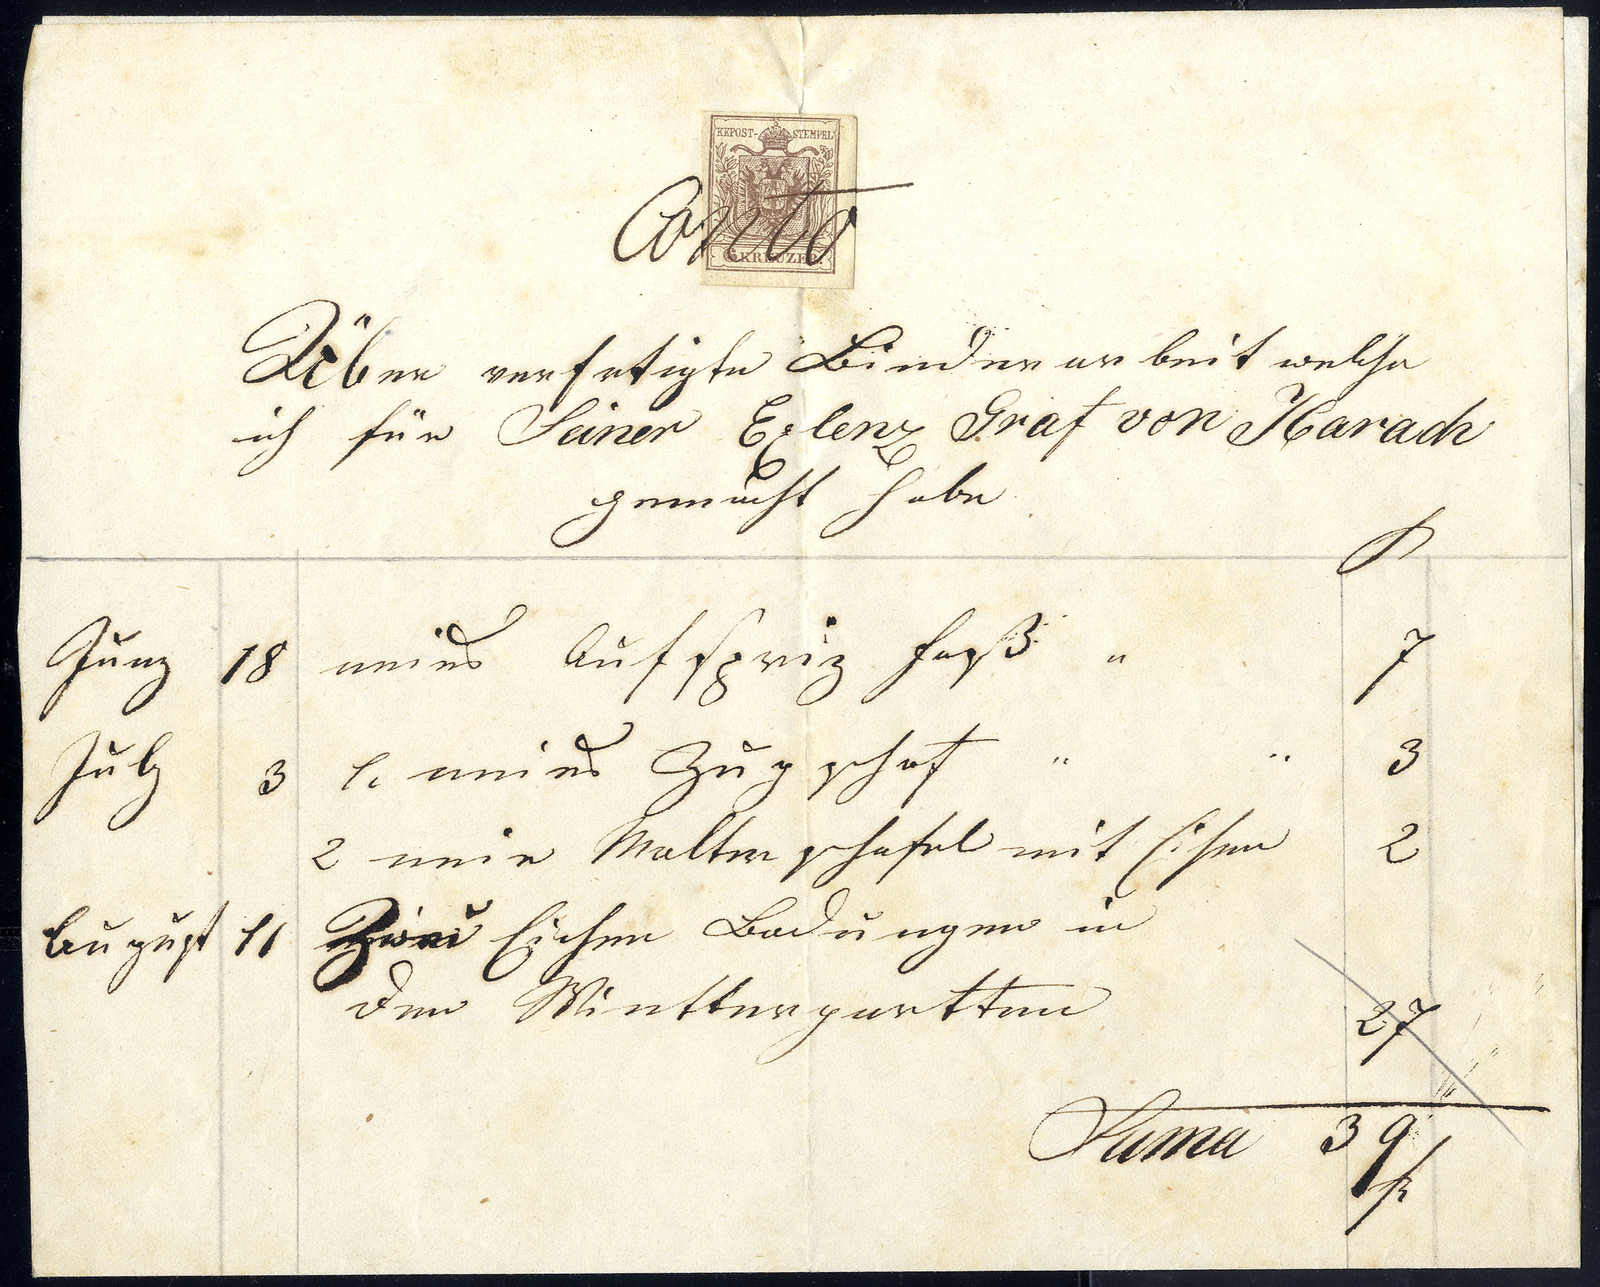 KKPOST-STEMPEL
Conto
6 KREUZER
Über verfertigte Binderarbeit welche
ich für Seiner Exlenz Graf von Harach
gemacht habe
f
Juny 18 neues Aufspriz faß " 7
July 3 1. neues Zugschaf " " 3
2 neue Malterschafel mit Eisen 2
August 11 Zwei Eichen Bodungen in
den Wintterpartten 27
Suma 39
f